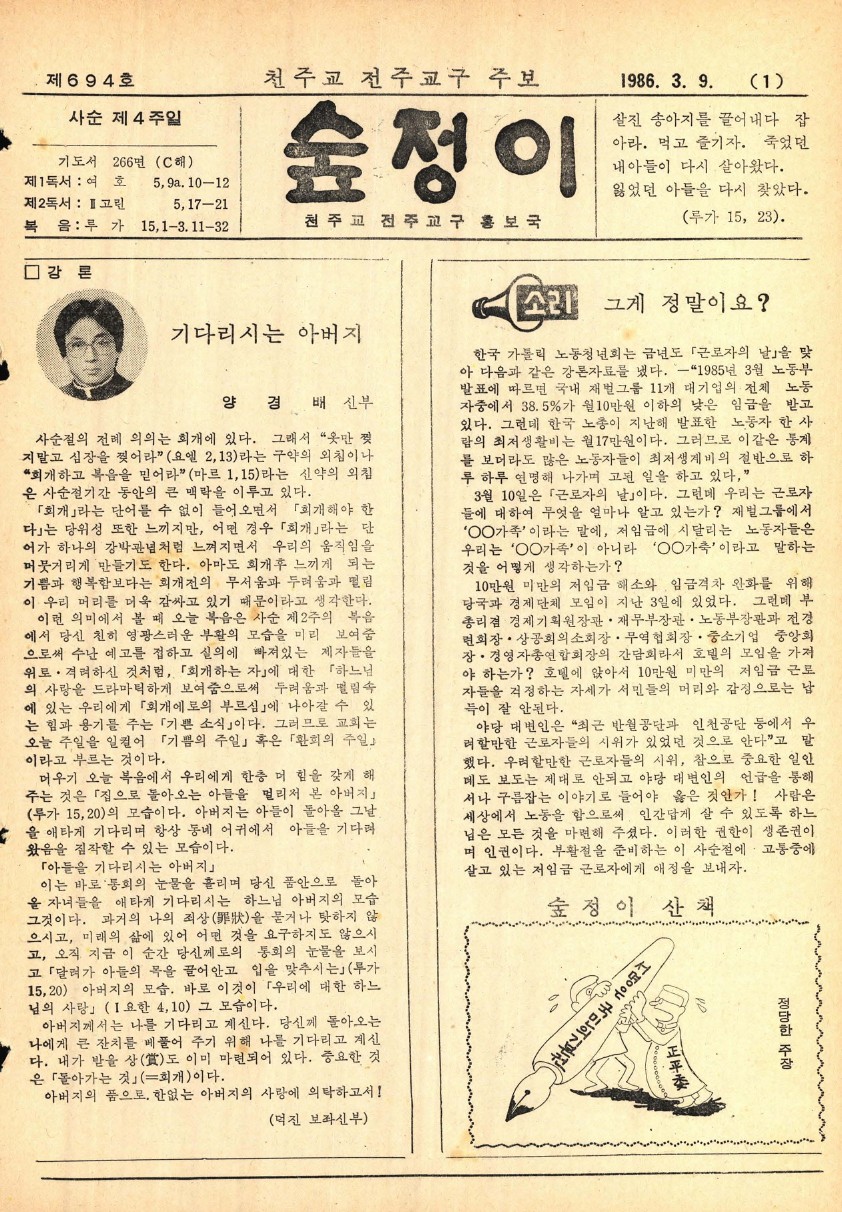 제694호
천주교 전주교구 주보
1986. 3. 9.
(1)
사순 제4주일
기도서 266면 (C해)
제1독서 : 여 호 5,9a. 10—12
제2독서 : Ⅱ고린 5,17—21
복 음 : 루 가 15,1—3. 11—32
숲정이
천주교 전주교구 홍보국
살진 송아지를 끌어내다 잡
아라. 먹고 즐기자. 죽었던
내아들이 다시 살아왔다.
잃었던 아들을 다시 찾았다.
(루가 15, 23).
□ 강 론
기다리시는 아버지
양 경 배 신부
사순절의 전례 의의는 회개에 있다. 그래서 “옷만 찢
지말고 심장을 찢어라”(요엘 2,13)라는 구약의 외침이나
“회개하고 복음을 믿어라”(마르 1,15)라는 신약의 외침
은 사순절기간 동안의 큰 맥락을 이루고 있다.
「회개」라는 단어를 수 없이 들어오면서 「회개해야 한
다」는 당위성 또한 느끼지만, 어떤 경우 「회개」라는 단
어가 하나의 강박관념처럼 느껴지면서 우리의 움직임을
머뭇거리게 만들기도 한다. 아마도 회개후 느끼게 되는
기쁨과 행복함보다는 회개전의 무서움과 두려움과 떨림
이 우리 머리를 더욱 감싸고 있기 때문이라고 생각한다.
이런 의미에서 볼 때 오늘 복음은 사순 제2주의 복음
에서 당신 친히 영광스러운 부활의 모습을 미리 보여줌
으로써 수난 예고를 접하고 실의에 빠져있는 제자들을
위로·격려하신 것처럼, 「회개하는 자」에 대한 「하느님
의 사랑을 드라마틱하게 보여줌으로써 두려움과 떨림속
에 있는 우리에게 「회개에로의 부르심」에 나아갈 수 있
는 힘과 용기를 주는 「기쁜 소식」이다. 그러므로 교회는
오늘 주일을 일컬어 「기쁨의 주일」 혹은 「환희의 주일」
이라고 부르는 것이다.
더우기 오늘 복음에서 우리에게 한층 더 힘을 갖게 해
주는 것은 「집으로 돌아오는 아들을 멀리서 본 아버지」
(루가 15,20)의 모습이다. 아버지는 아들이 돌아올 그날
을 애타게 기다리며 항상 동네 어귀에서 아들을 기다려
왔음을 짐작할 수 있는 모습이다.
「아들을 기다리시는 아버지」
이는 바로 통회의 눈물을 흘리며 당신 품안으로 돌아
올 자녀들을 애타게 기다리는 하느님 아버지의 모습
그것이다. 과거의 나의 죄상(罪狀)을 묻거나 탓하지 않
으시고, 미래의 삶에 있어 어떤 것을 요구하지도 않으시
고, 오직 지금 이 순간 당신께로의 통회의 눈물을 보시
고 「달려가 아들의 목을 끌어안고 입을 맞추시는」(루가
15,20) 아버지의 모습. 바로 이것이 「우리에 대한 하느
님의 사랑」 (Ⅰ요한 4,10) 그 모습이다.
아버지께서는 나를 기다리고 계신다. 당신께 돌아오는
나에게 큰 잔치를 베풀어 주기 위해 나를 기다리고 계신
다. 내가 받을 상(賞)도 이미 마련되어 있다. 중요한 것
은 「돌아가는 것」(=회개)이다.
아버지의 품으로. 한없는 아버지의 사랑에 의탁하고서!
(덕진 보좌신부)
소리
그게 정말이요?
한국 가톨릭 노동청년회는 금년도 「근로자의 날」을 맞
아 다음과 같은 강론자료를 냈다. —“1985년 3월 노동부
발표에 따르면 국내 재벌그룹 11개 대기업의 전체 노동
자중에서 38.5%가 월10만원 이하의 낮은 임금을 받고
있다. 그런데 한국 노총이 지난해 발표한 노동자 한 사
람의 최저생활비는 월17만원이다. 그러므로 이같은 통계
를 보더라도 많은 노동자들이 최저생계비의 절반으로 하
루 하루 연명해 나가며 고된 일을 하고 있다,”
3월 10일은 「근로자의 날」이다. 그런데 우리는 근로자
들에 대하여 무엇을 얼마나 알고 있는가? 재벌그룹에서
‘○○가족’이라는 말에, 저임금에 시달리는 노동자들은
우리는 ‘○○가족’이 아니라 ‘○○가축’이라고 말하는
것을 어떻게 생각하는가?
10만원 미만의 저임금 해소와 임금격차 완화를 위해
당국과 경제단체 모임이 지난 3일에 있었다. 그런데 부
총리겸 경제기획원장관·재무부장관·노동부장관과 전경
련회장·상공회의소회장·무역협회장·중소기업 중앙회
장·경영자총연합회장의 간담회라서 호텔의 모임을 가져
야 하는가? 호텔에 앉아서 10만원 미만의 저임금 근로
자들을 걱정하는 자세가 서민들의 머리와 감정으로는 납
득이 잘 안된다.
야당 대변인은 “최근 반월공단과 인천공단 등에서 우
려할만한 근로자들의 시위가 있었던 것으로 안다”고 말
했다. 우려할만한 근로자들의 시위, 참으로 중요한 일인
데도 보도는 제대로 안되고 야당 대변인의 언급을 통해
서나 구름잡는 이야기로 들어야 옳은 것인가! 사람은
세상에서 노동을 함으로써 인간답게 살 수 있도록 하느
님은 모든 것을 마련해 주셨다. 이러한 권한이 생존권이
며 인권이다. 부활절을 준비하는 이 사순절에 고통중에
살고 있는 저임금 근로자에게 애정을 보내자.
숲정이 산책
서명은 국민의 기본권
正平委
정당한 주장